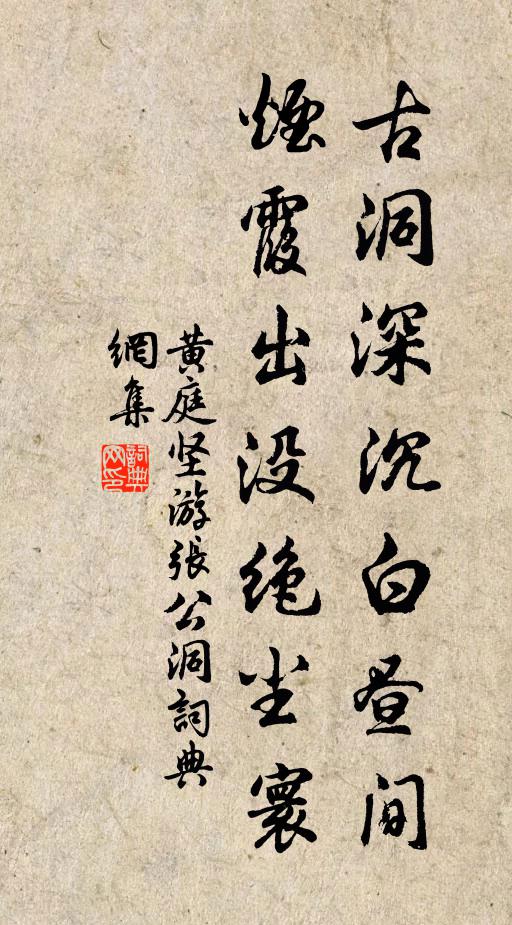 古洞深沉白昼间
煙霞出没绝尘寰
黄庭坚游張公洞詞典
網集
詞典网印